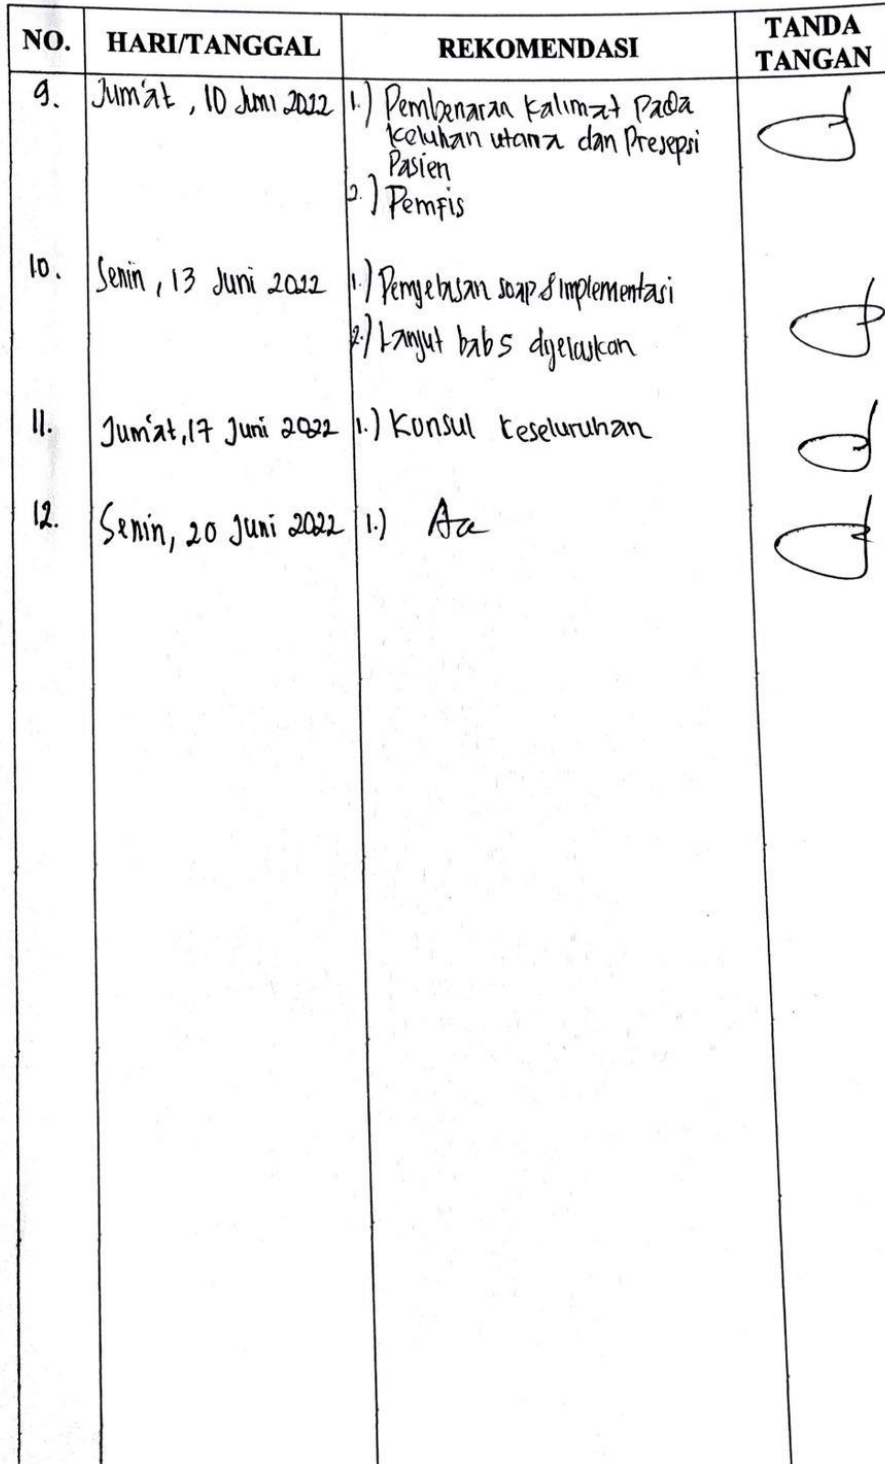 NO. HARI/TANGGAL REKOMENDASI TANDA TANGAN
9. Jum'at, 10 Juni 2022 1.) Pembenaran Kalimat Pada
keluhan utama dan Presepsi
Pasien
2.) Pemfis
10. Senin, 13 Juni 2022 1.) soap & implementasi
2.) Lanjut bab 5 dijelaskan
11. Jum'at, 17 Juni 2022 1.) Konsul keseluruhan
12. Senin, 20 Juni 2022 1.)